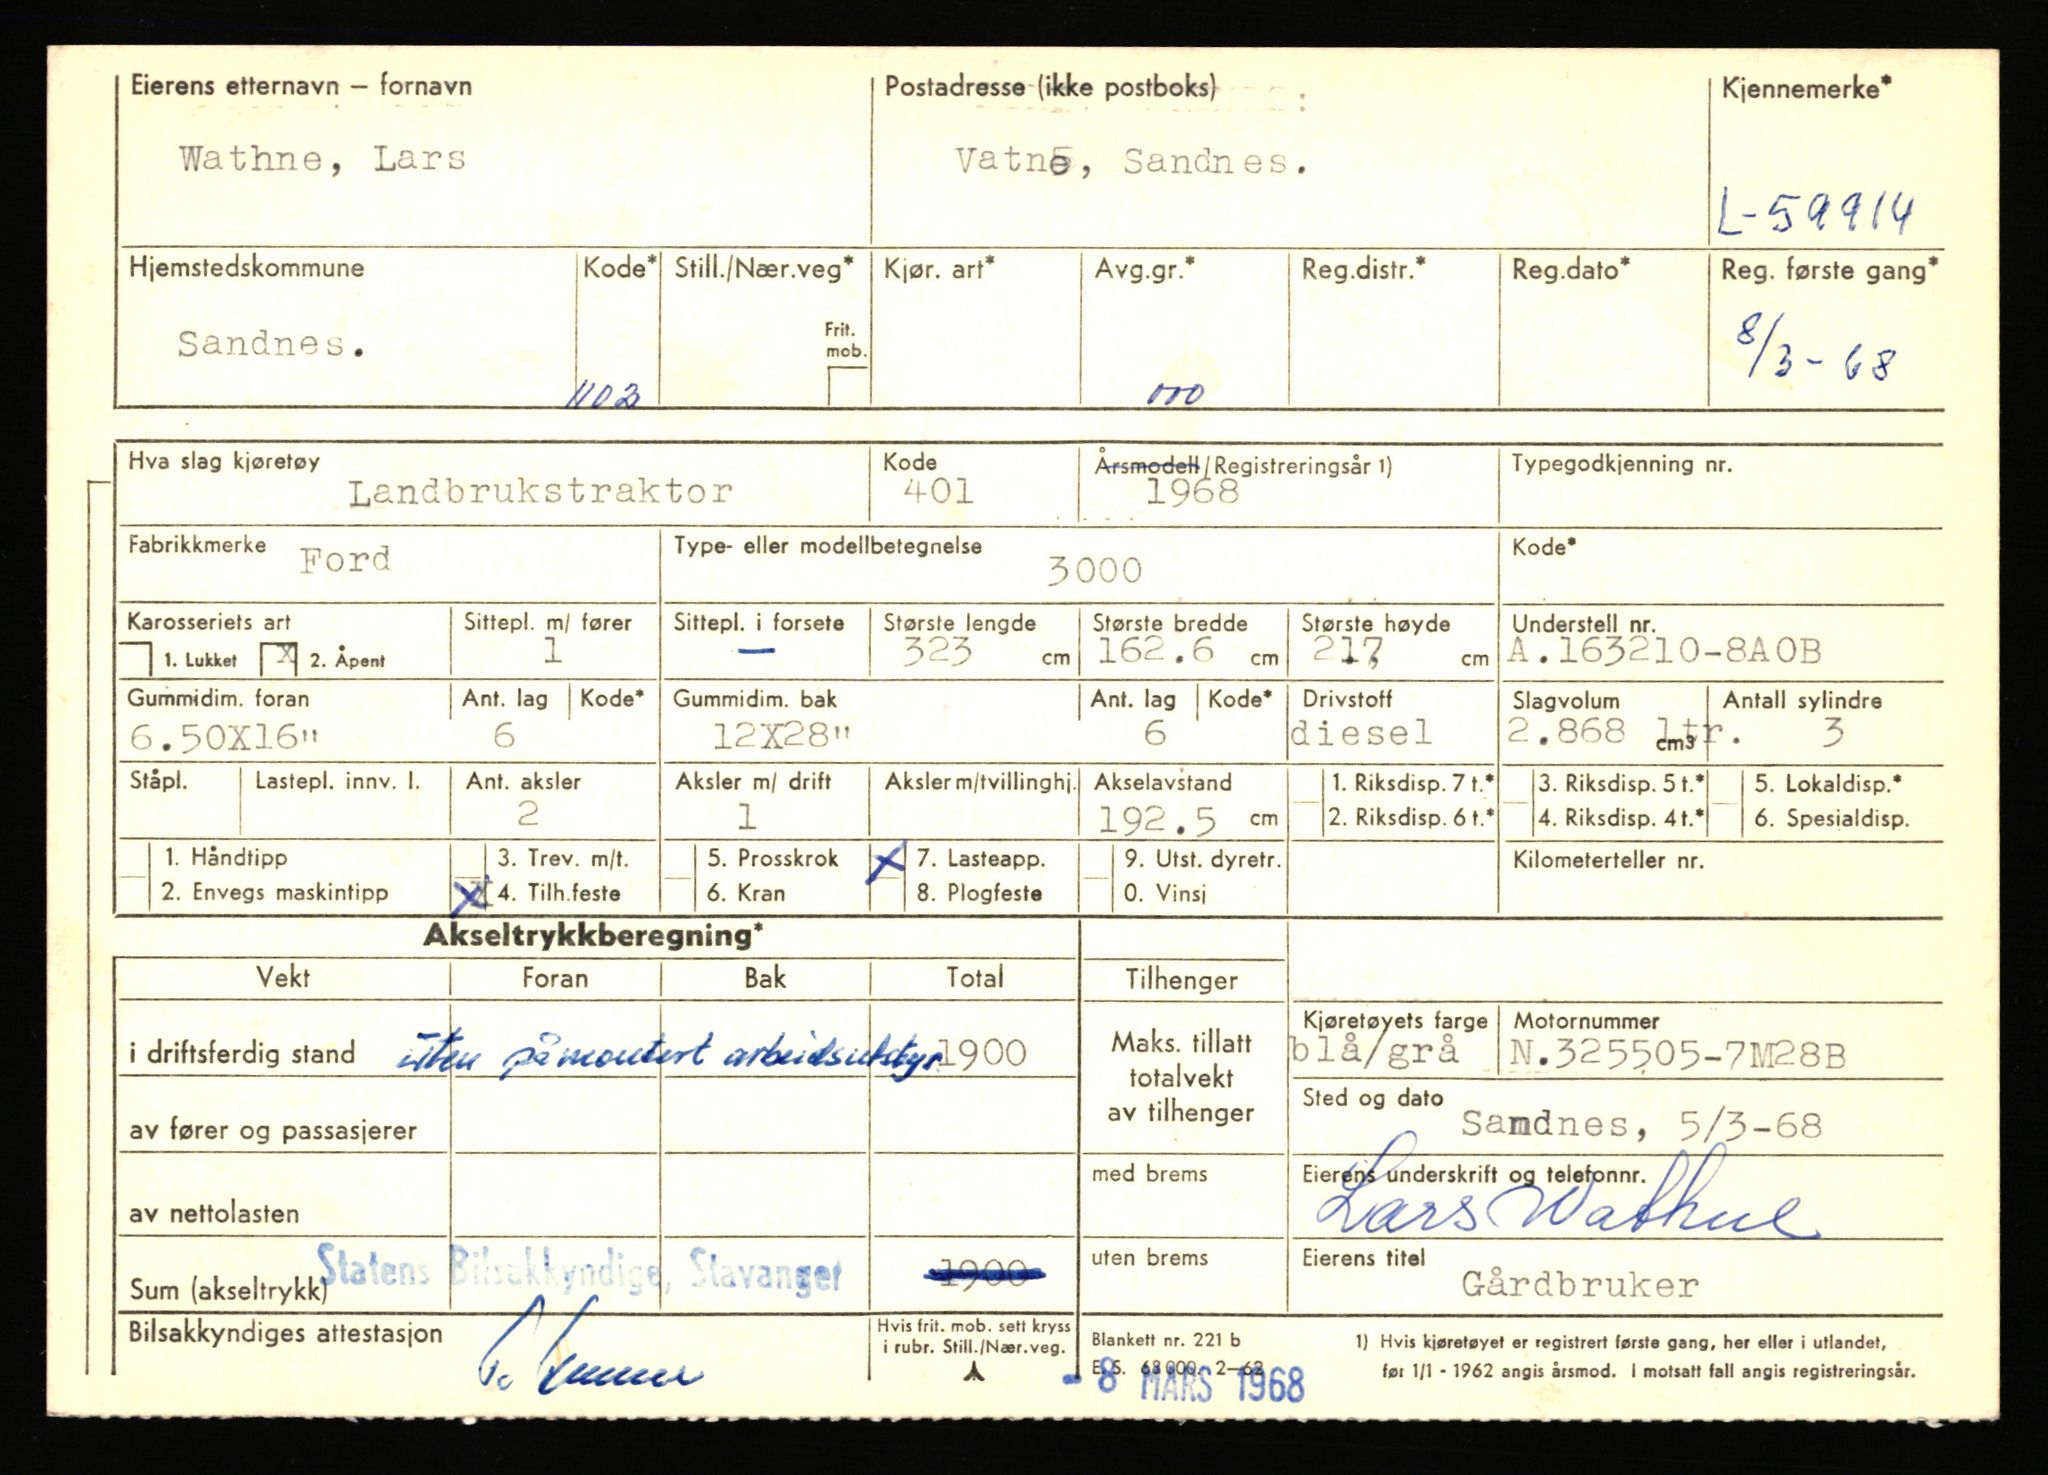 Eierens etternavn – fornavn Postadresse (ikke postboks) Kjennemerke*
Wathne, Lars Vatne, Sandnes.
L-59914
Hjemstedskommune Kode* Still./Nær.veg* Kjør. art* Avg.gr.* Reg.distr.* Reg.dato* Reg. første gang*
Sandnes. Frit. mob. 8/3-68
1102 000
Hva slag kjøretøy Kode Årsmodell/Registreringsår 1) Typegodkjenning nr.
Landbrukstraktor 401 1968
Fabrikkmerke Type- eller modellbetegnelse Kode*
Ford 3000
Karosseriets art Sittepl. m/ fører Sittepl. i forsete Største lengde Største bredde Største høyde Understell nr.
1. Lukket X 2. Åpent 1 – 323 cm 162.6 cm 217 cm A.163210-8A0B
Gummidim. foran Ant. lag Kode* Gummidim. bak Ant. lag Kode* Drivstoff Slagvolum Antall sylindre
6.50X16" 6 12X28" 6 diesel 2.868 ltr. cm3 3
Ståpl. Lastepl. innv. l. Ant. aksler Aksler m/ drift Aksler m/tvillinghj. Akselavstand 1. Riksdisp. 7 t.* 3. Riksdisp. 5 t.* 5. Lokaldisp.*
2 1 192.5 cm 2. Riksdisp. 6 t.* 4. Riksdisp. 4 t.* 6. Spesialdisp.
1. Håndtipp 3. Trev. m/t. 5. Prosskrok X 7. Lasteapp. 9. Utst. dyretr. Kilometerteller nr.
2. Envegs maskintipp X 4. Tilh.feste 6. Kran 8. Plogfeste 0. Vinsj
Akseltrykkberegning*
Vekt Foran Bak Total Tilhenger
Kjøretøyets farge Motornummer
i driftsferdig stand uten påmontert arbeidsutstyr 1900 Maks. tillatt totalvekt av tilhenger blå/grå N.325505-7M28B
Sted og dato
av fører og passasjerer Sandnes, 5/3-68
med brems Eierens underskrift og telefonnr.
av nettolasten Lars Wathne
Statens Bilsakkyndige, Stavanger uten brems Eierens titel
Sum (akseltrykk) 1900 Gårdbruker
Bilsakkyndiges attestasjon Hvis frit. mob. sett kryss i rubr. Still./Nær.veg. Blankett nr. 221 b 1) Hvis kjøretøyet er registrert første gang, her eller i utlandet,
E. S. 68 000. 2–62 før 1/1 - 1962 angis årsmod. I motsatt fall angis registreringsår.
- 8 MARS 1968